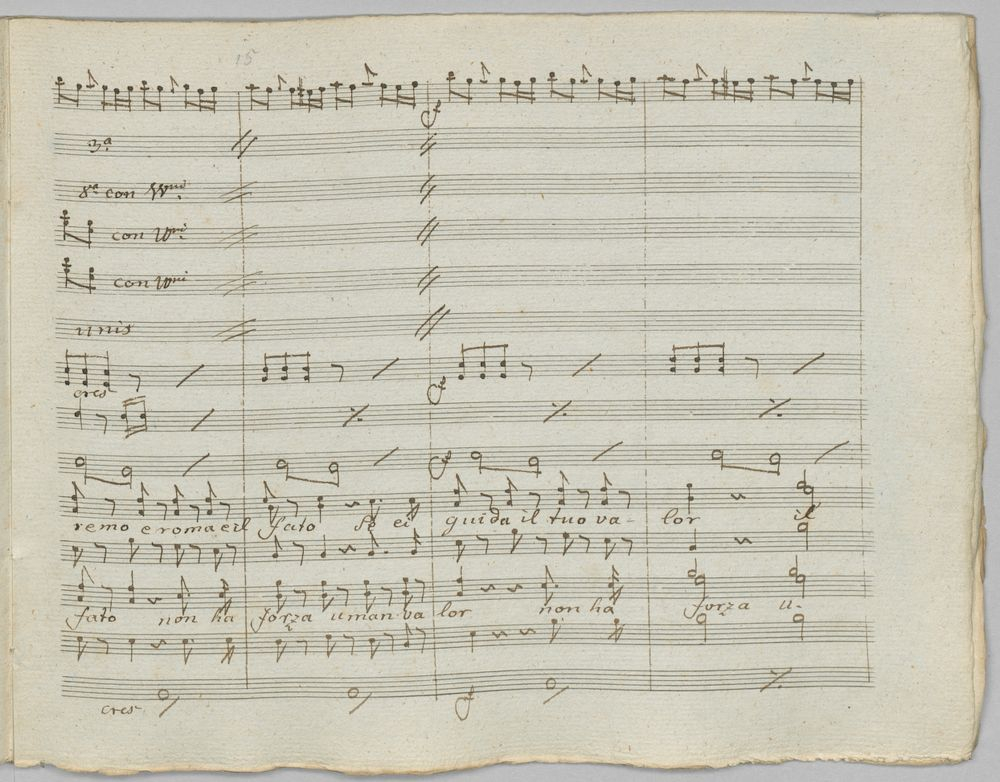 15
3ª
8ª con VVni
con VVni
con VVni
unis
cres
remo e roma e il fato se ei guida il tuo va- lor il
fato non ha forza uman va lor non ha forza u-
cres